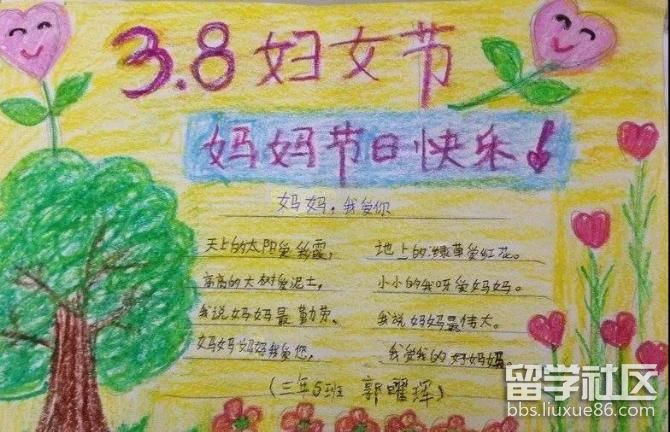 3.8妇女节
妈妈节日快乐!
妈妈,我爱你
天上的太阳爱彩霞, 地上的绿草爱红花。
高高的大树爱泥土, 小小的我呀爱妈妈。
我说妈妈最勤劳、 我说妈妈最伟大。
妈妈妈妈我爱您, 我爱我的好妈妈。
(三年5班 郭曜珲)
留学社区
bbs.liuxue86.com